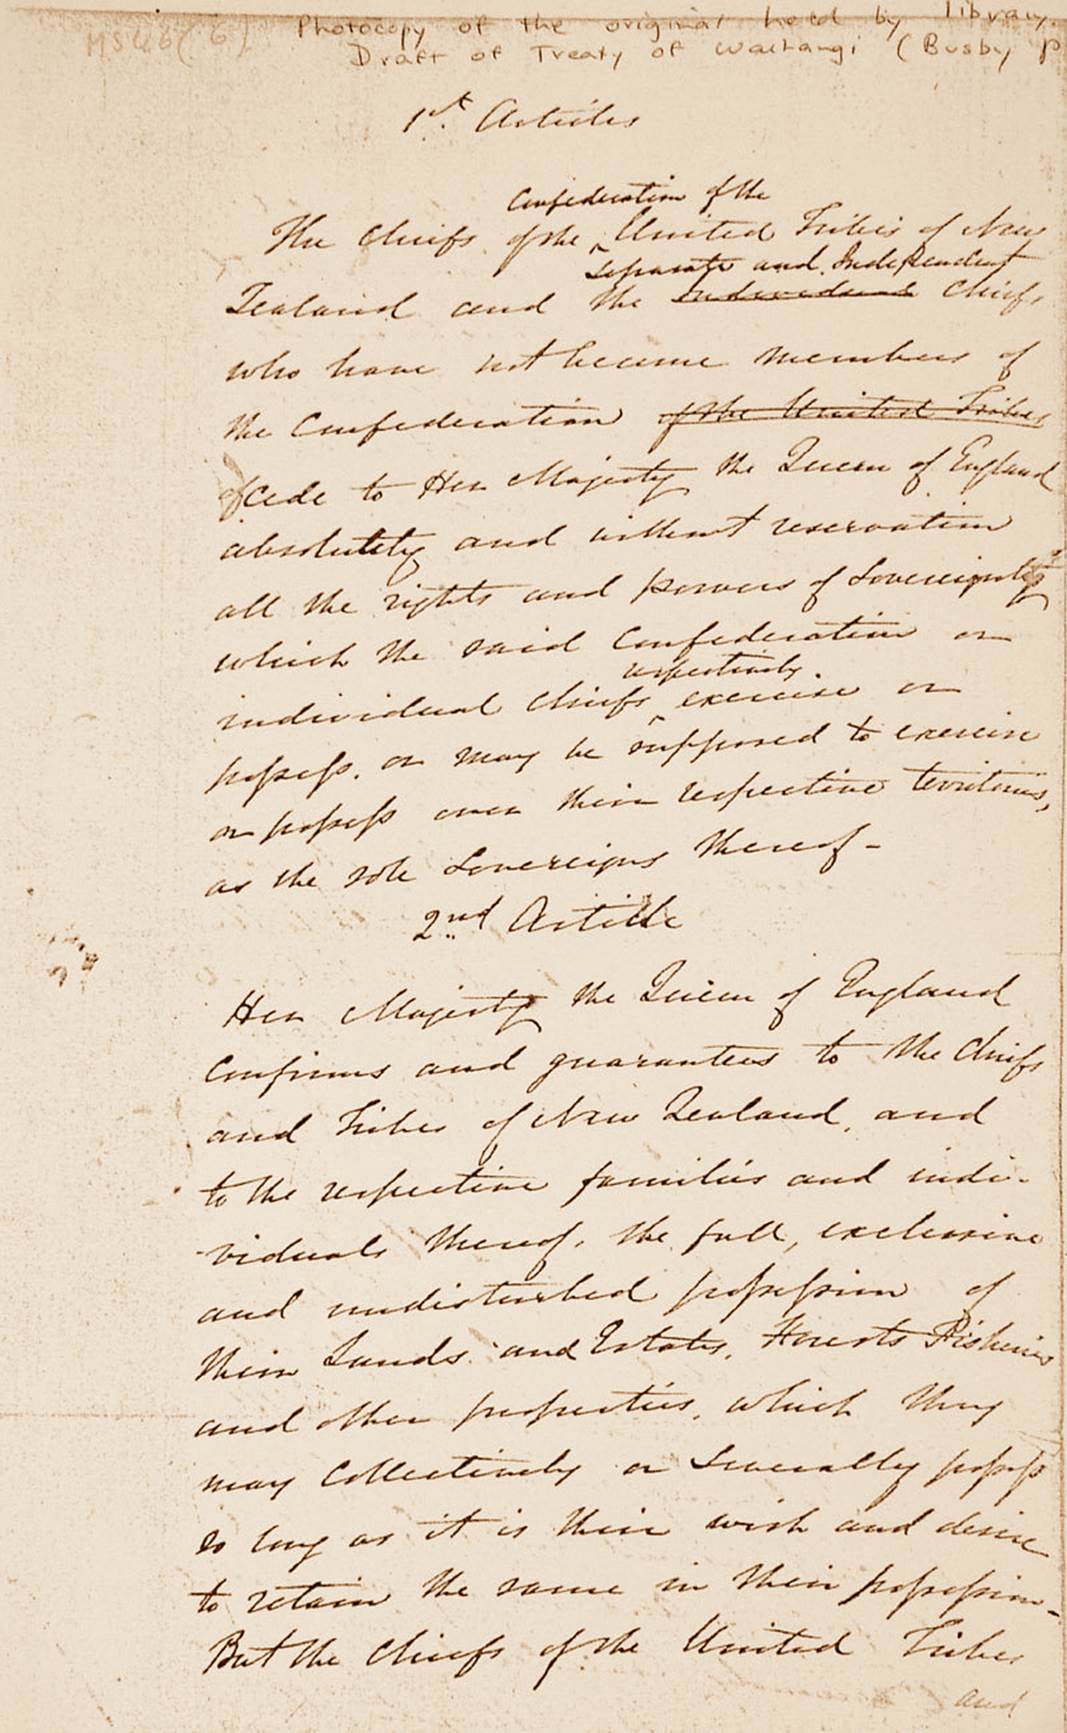 MS46(6)
Photocopy of the original held by library.
Draft of Treaty of Waitangi (Busby p
1st. Articles
Confederation of the
The Chiefs of the ^ United Tribes of New
Separate and Independent
Zealand and the individual Chiefs
who have not become members of
the Confederation of the United Tribes
cede to Her Majesty the Queen of England
absolutely and without reservation
all the rights and powers of Sovereignty
which the said Confederation or
respectively
individual Chiefs ^ exercise or
possess, or may be supposed to exercise
or possess over their respective territories,
as the sole Sovereigns thereof -
2nd Article
Her Majesty the Queen of England
Confirms and guarantees to the Chiefs
and Tribes of New Zealand, and
to the respective families and indi-
-viduals thereof, the full, exclusive
and undisturbed possession of
their Lands and Estates, Forests Fisheries
and other properties, which they
may Collectively or Severally possess
so long as it is their wish and desire
to retain the same in their possession -
But the Chiefs of the United Tribes
and